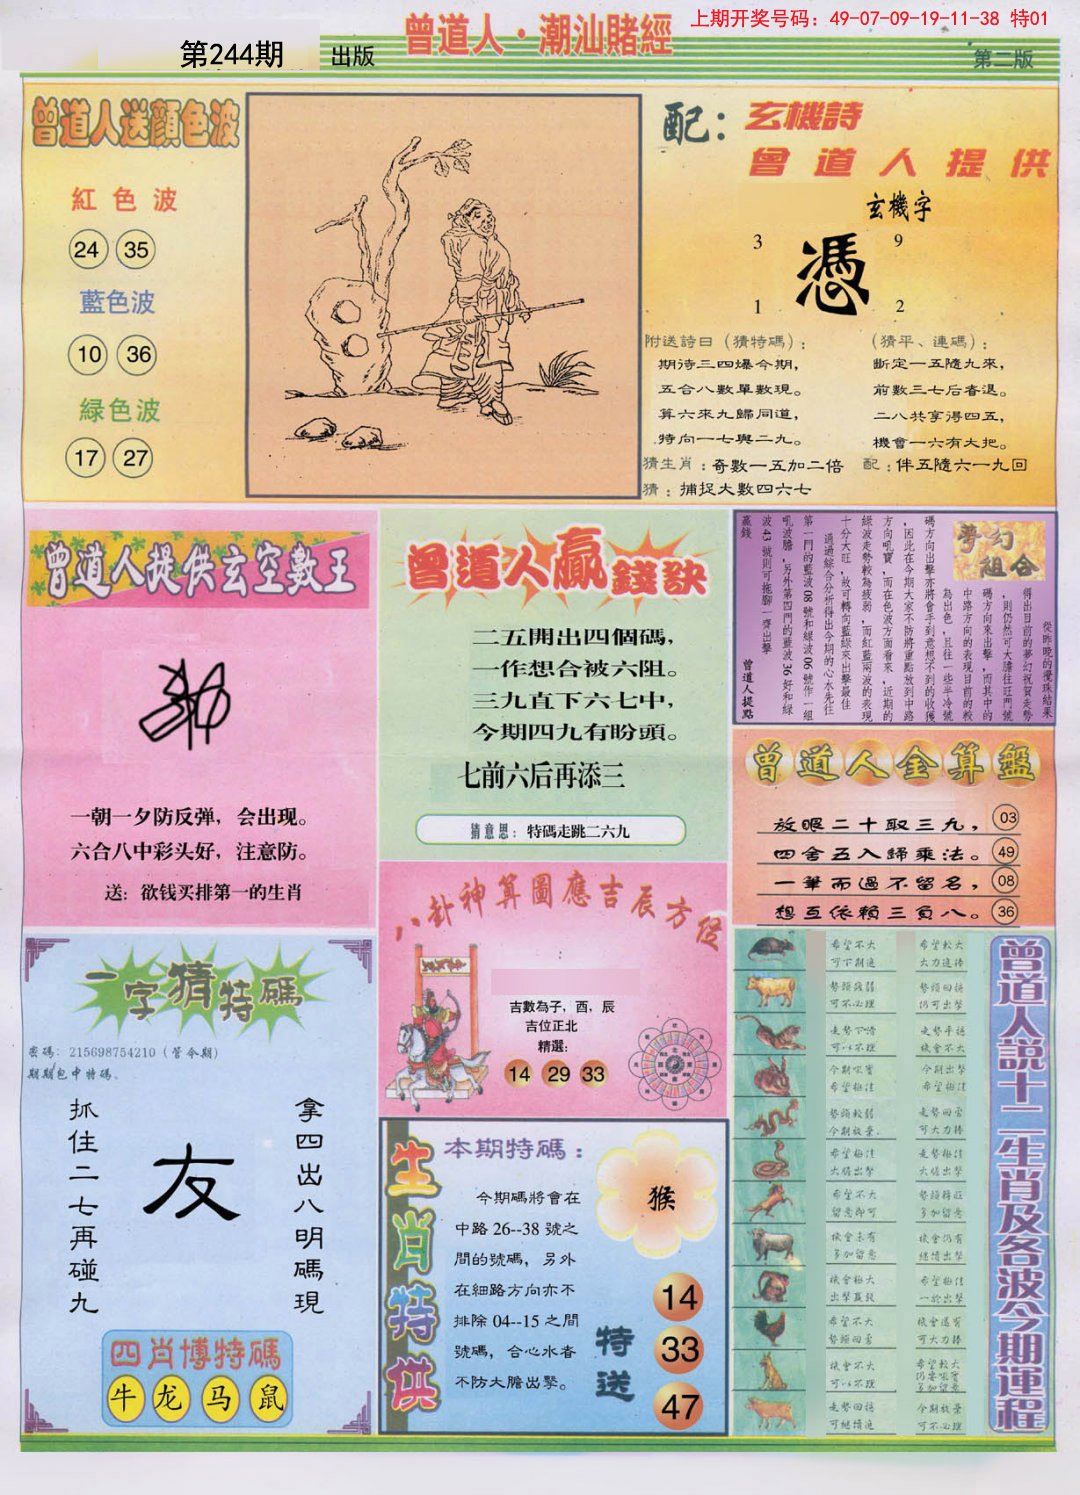 上期开奖号码：49-07-09-19-11-38 特01
第244期 出版
曾道人·潮汕賭經
第二版
曾道人送顔色波
紅色波
24 35
藍色波
10 36
緑色波
17 27
配：玄機詩
曾道人提供
玄機字
3 9
憑
1 2
附送詩曰（猜特碼）；
期待三四爆今期，
五合八數單數現。
算六來九歸同道，
特向一七與二九。
（猜平、連碼）；
斷定一五隨九來，
前數三七后看退。
二八共享得四五，
機會一六有大把。
猜生肖：奇數一五加二倍
配：伴五隨六一九回
猜：捕捉大數四六七
曾道人提供玄空數王
一朝一夕防反弹，会出现。
六合八中彩头好，注意防。
送：欲钱买排第一的生肖
曾道人贏錢訣
二五開出四個碼，
一作想合被六阻。
三九直下六七中，
今期四九有盼頭。
七前六后再添三
猜意思：特碼走跳二六九
夢幻組合
從昨晚的攪珠結果
得出目前的夢幻祝賀走勢
，則仍然可大膽往旺門號
碼方向來出擊，而其中的
中路方向的表現目前的較
為出色，且往一些半冷號
碼方向出擊亦將會手到意想不到的收獲
，因此在今期大家不防將重點放到中路
方向吼寶，而在色波方面看來，近期的
綠波走勢較為疲弱，而紅藍兩波的表現
十分大旺，故可轉向藍綠來出擊最佳
通過綜合分析得出今期的心水先往
第一門的藍波08號和綠波06號作一組
吼波膽，另外第四門的藍波36好和綠
波43號則可拖腳一齊出擊
贏錢
曾道人提點
曾道人金算盤
放眼二十取三九，03
四舍五入歸乘法。49
一筆而過不留名，08
想互依賴三負八。36
八卦神算圖應吉辰方位
吉數為子，酉，辰
吉位正北
精選：
14 29 33
一字猜特碼
密碼：215698754210（管今期）
期期包中特碼、
抓住二七再碰九
友
拿四出八明碼現
四肖博特碼
牛 龙 马 鼠
生肖特供
本期特碼：
今期碼將會在
中路26--38號之
間的號碼，另外
在細路方向亦不
排除04--15之間
號碼，合心水者
不防大膽出擊。
猴
特送
14
33
47
曾道人說十二生肖及各波今期運程
希望不大
可下期追
希望較大
大力追捧
可不必理
仍可出擊
可以不理
機會不大
今期吼實
希望極佳
今期出擊
希望極佳
勢頭較弱
今期放棄.
可大力捧
希望極佳
大膽出擊
走勢極佳
大膽出擊
希望不大
留意即可
多加留意
機會未有
多加留意
機會仍有
繼續出擊
機會極大
希望極佳
希望不大
可大力捧
機會不大
可以不理
希望較大
多加留意
可繼續追
今期放棄
可不必理